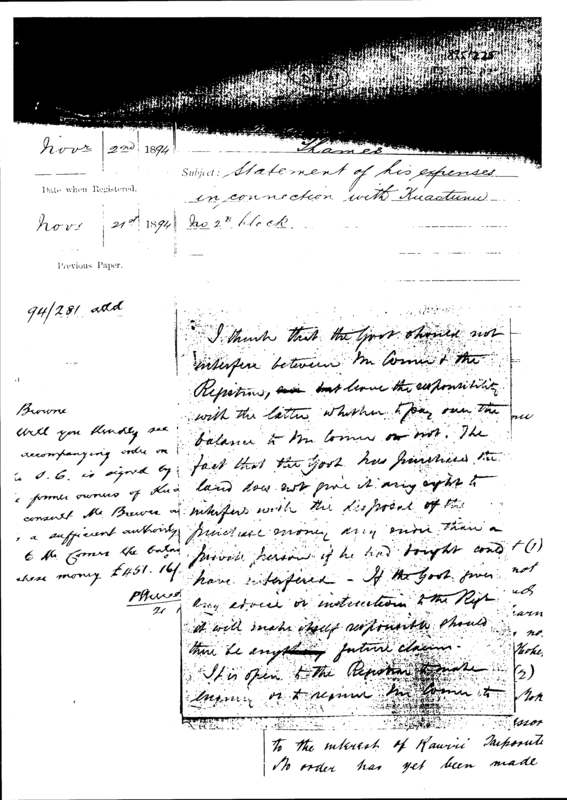 Thames
Novr 2nd 1894
Subject: Statement of his expenses
Date when Registered.
in connection with Kuaotunu
Novr 21st 1894
No 2 block.
Previous Paper.
94/281 attd
I think that the Govt should not
interfere between Mr Comer & the
Registrar, but leave the responsibility
with the latter whether to pay over the
balance to Mr Comer or not. The
fact that the Govt has purchased the
land does not give it any right to
interfere with the disposal of the
purchase money any more than a
private person if he had bought could
have interfered - If the Govt gives
any advice or instruction to the Regr
it will make itself responsible should
there be any future claim.
It is open to the Registrar to make
enquiry or to require Mr Comer to
Browne
Will you kindly see
accompanying order on
S. C. is signed by
former owners of
consult Mr Brewer
a sufficient authority
to Mr Comer the
chase money £451. 16/
21
(1)
not
no.
(2)
to the interest of
No order has yet been made